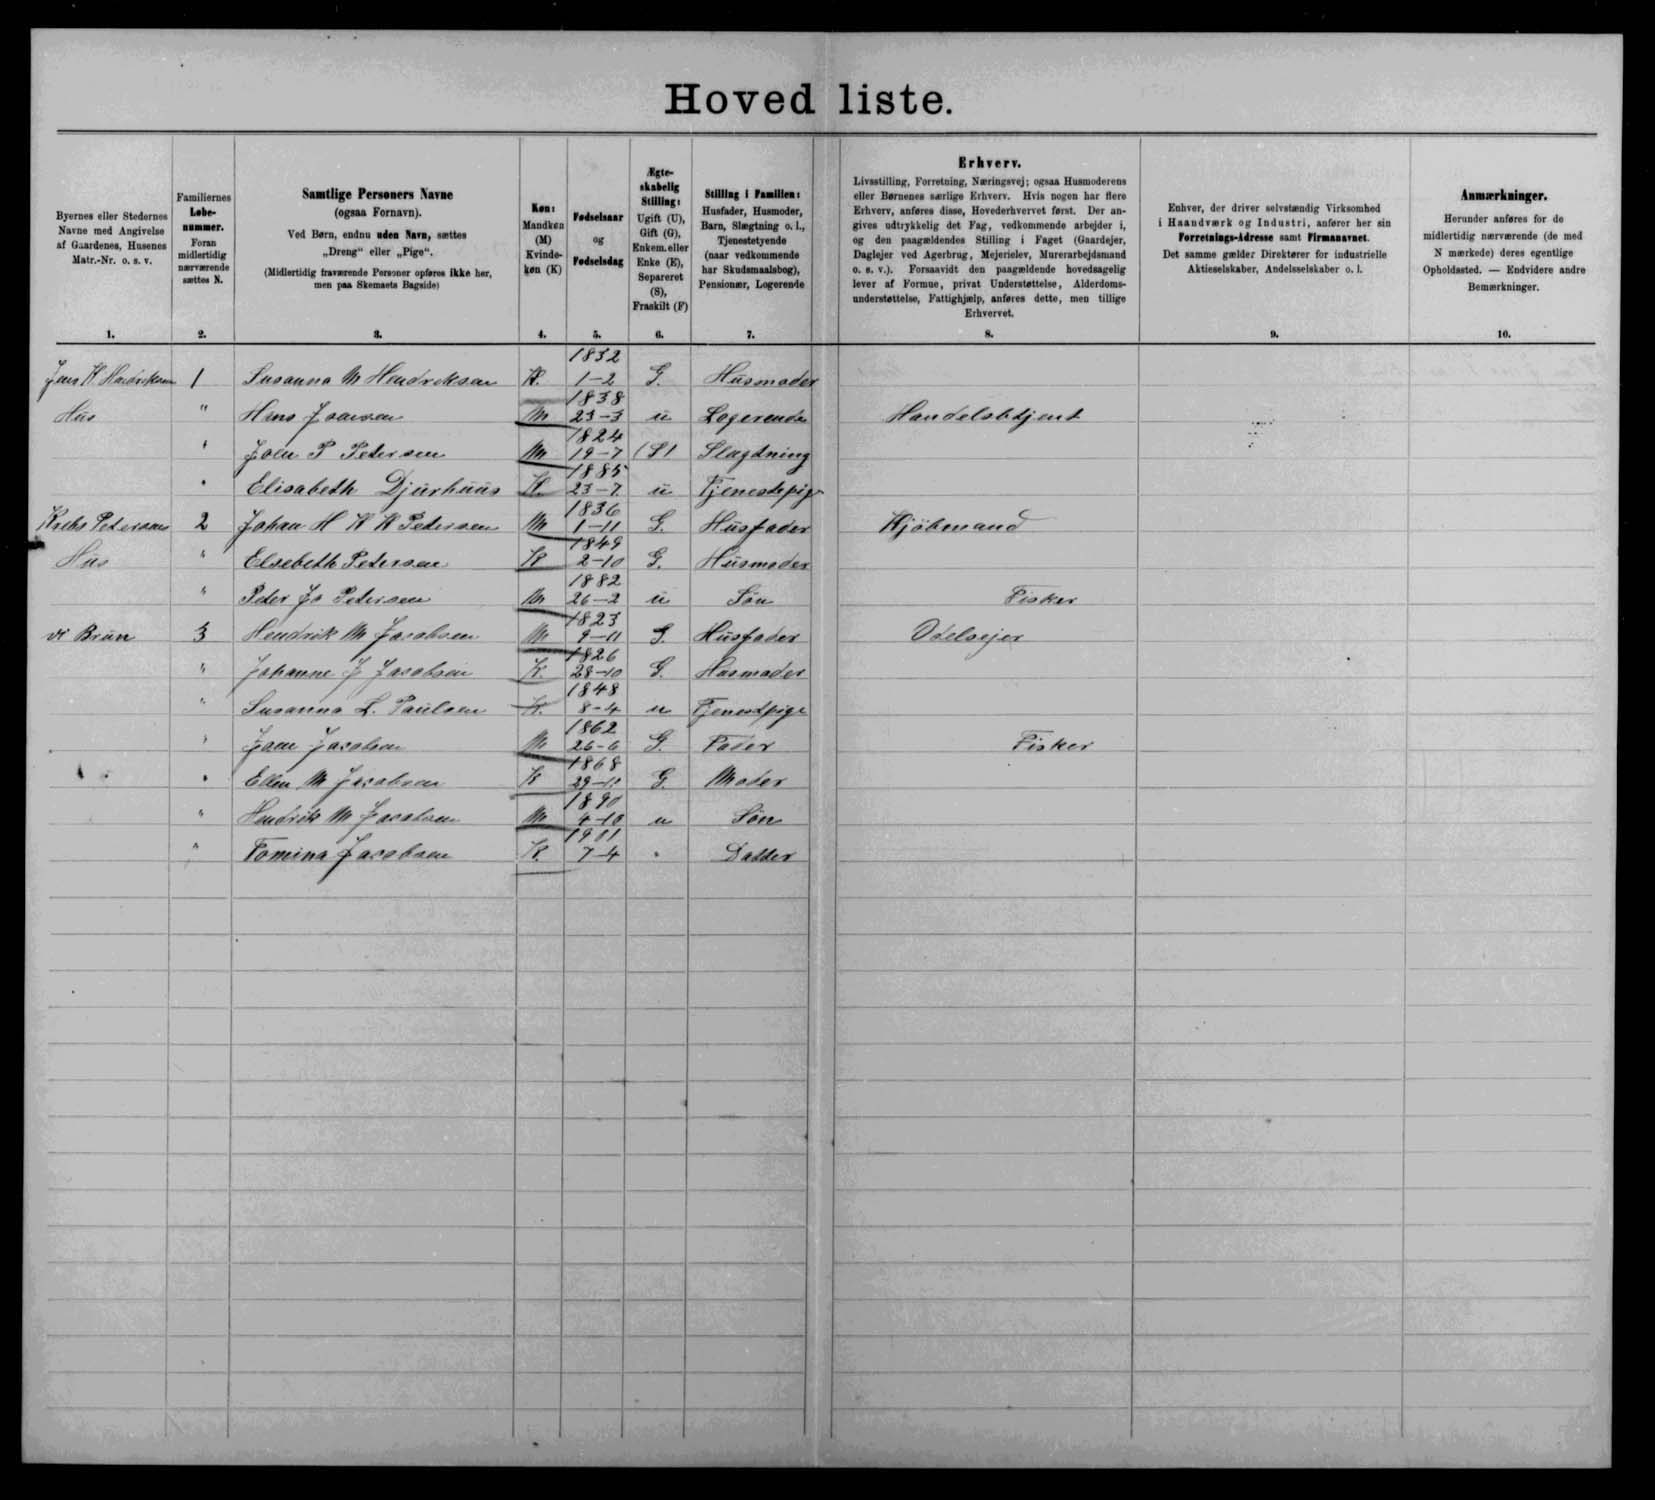 Hoved liste.
Byernes eller Stedernes
Navne med Angivelse
af Gaardenes, Husenes
Matr.-Nr. o. s. v.
1.
Familiernes
Løbe-
nummer.
Foran
midlertidig
nærværende
sættes N.
2.
Samtlige Personers Navne
(ogsaa Fornavn).
Ved Børn, endnu uden Navn, sættes
„Dreng“ eller „Pige“.
(Midlertidig fraværende Personer opføres ikke her,
men paa Skemaets Bagside)
3.
Køn:
Mandkøn
(M)
Kvinde-
køn (K)
4.
Fødselsaar
og
Fødselsdag
5.
Ægte-
skabelig
Stilling:
Ugift (U),
Gift (G),
Enkem. eller
Enke (E),
Separeret
(S),
Fraskilt (F)
6.
Stilling i Familien:
Husfader, Husmoder,
Barn, Slægtning o. l.,
Tjenestetyende
(naar vedkommende
har Skudsmaalsbog),
Pensionær, Logerende
7.
Erhverv.
Livsstilling, Forretning, Næringsvej; ogsaa Husmoderens
eller Børnenes særlige Erhverv. Hvis nogen har flere
Erhverv, anføres disse, Hovederhvervet først. Der an-
gives udtrykkelig det Fag, vedkommende arbejder i,
og den paagældendes Stilling i Faget (Gaardejer,
Daglejer ved Agerbrug, Mejerielev, Murerarbejdsmand
o. s. v.). Forsaavidt den paagældende hovedsagelig
lever af Formue, privat Understøttelse, Alderdoms-
understøttelse, Fattighjælp, anføres dette, men tillige
Erhvervet.
8.
Enhver, der driver selvstændig Virksomhed
i Haandværk og Industri, anfører her sin
Forretnings-Adresse samt Firmanavnet.
Det samme gælder Direktører for industrielle
Aktieselskaber, Andelsselskaber o. l.
9.
Anmærkninger.
Herunder anføres for de
midlertidig nærværende (de med
N mærkede) deres egentlige
Opholdssted. — Endvidere andre
Bemærkninger.
10.
Jens K Hendriksen 1 Susanna M Hendriksen K. 1832 1-2 G. Husmoder
Hus " Hans Joensen M 1838 23-3 u Logerende Handelsbetjent
" Joen P Petersen M 1824 19-7 (S) Slagdning
" Elisabeth Djurhuus K. 1885 23-7 u Tjenestepige
Krebs Petersens 2 Johan H K K Petersen M 1836 1-11 G. Husfader Kjöbmand
Hus " Elsebeth Petersen K 1849 2-10 G. Husmoder
" Peter Jo Petersen M 1882 26-2 u Sön Fisker
vi Brun 3 Hendrik M Jacobsen M 1823 9-11 G. Husfader Odelsejer
" Johanne J Jacobsen K. 1826 28-10 G. Husmoder
" Susanna L. Paulsen K. 1848 8-4 u Tjenestpige
" Joen Jacobsen M 1862 26-6 G. Fader Fisker
" Ellen M Jacobsen K 1868 G. Moder
" Hendrik M Jacobsen M 1890 4-10 u Sön
" Tomina Jacobsen K. 1901 7-4 " Datter